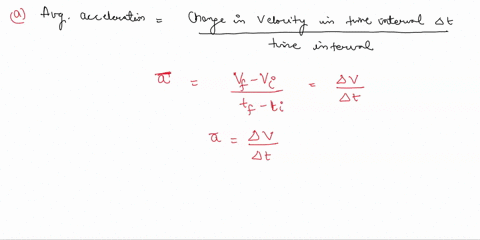 (a) Avg. acceleration = Change in Velocity in time interval Δt
time interval
a̅ = V_f - V_i / t_f - t_i = ΔV / Δt
a̅ = ΔV / Δt